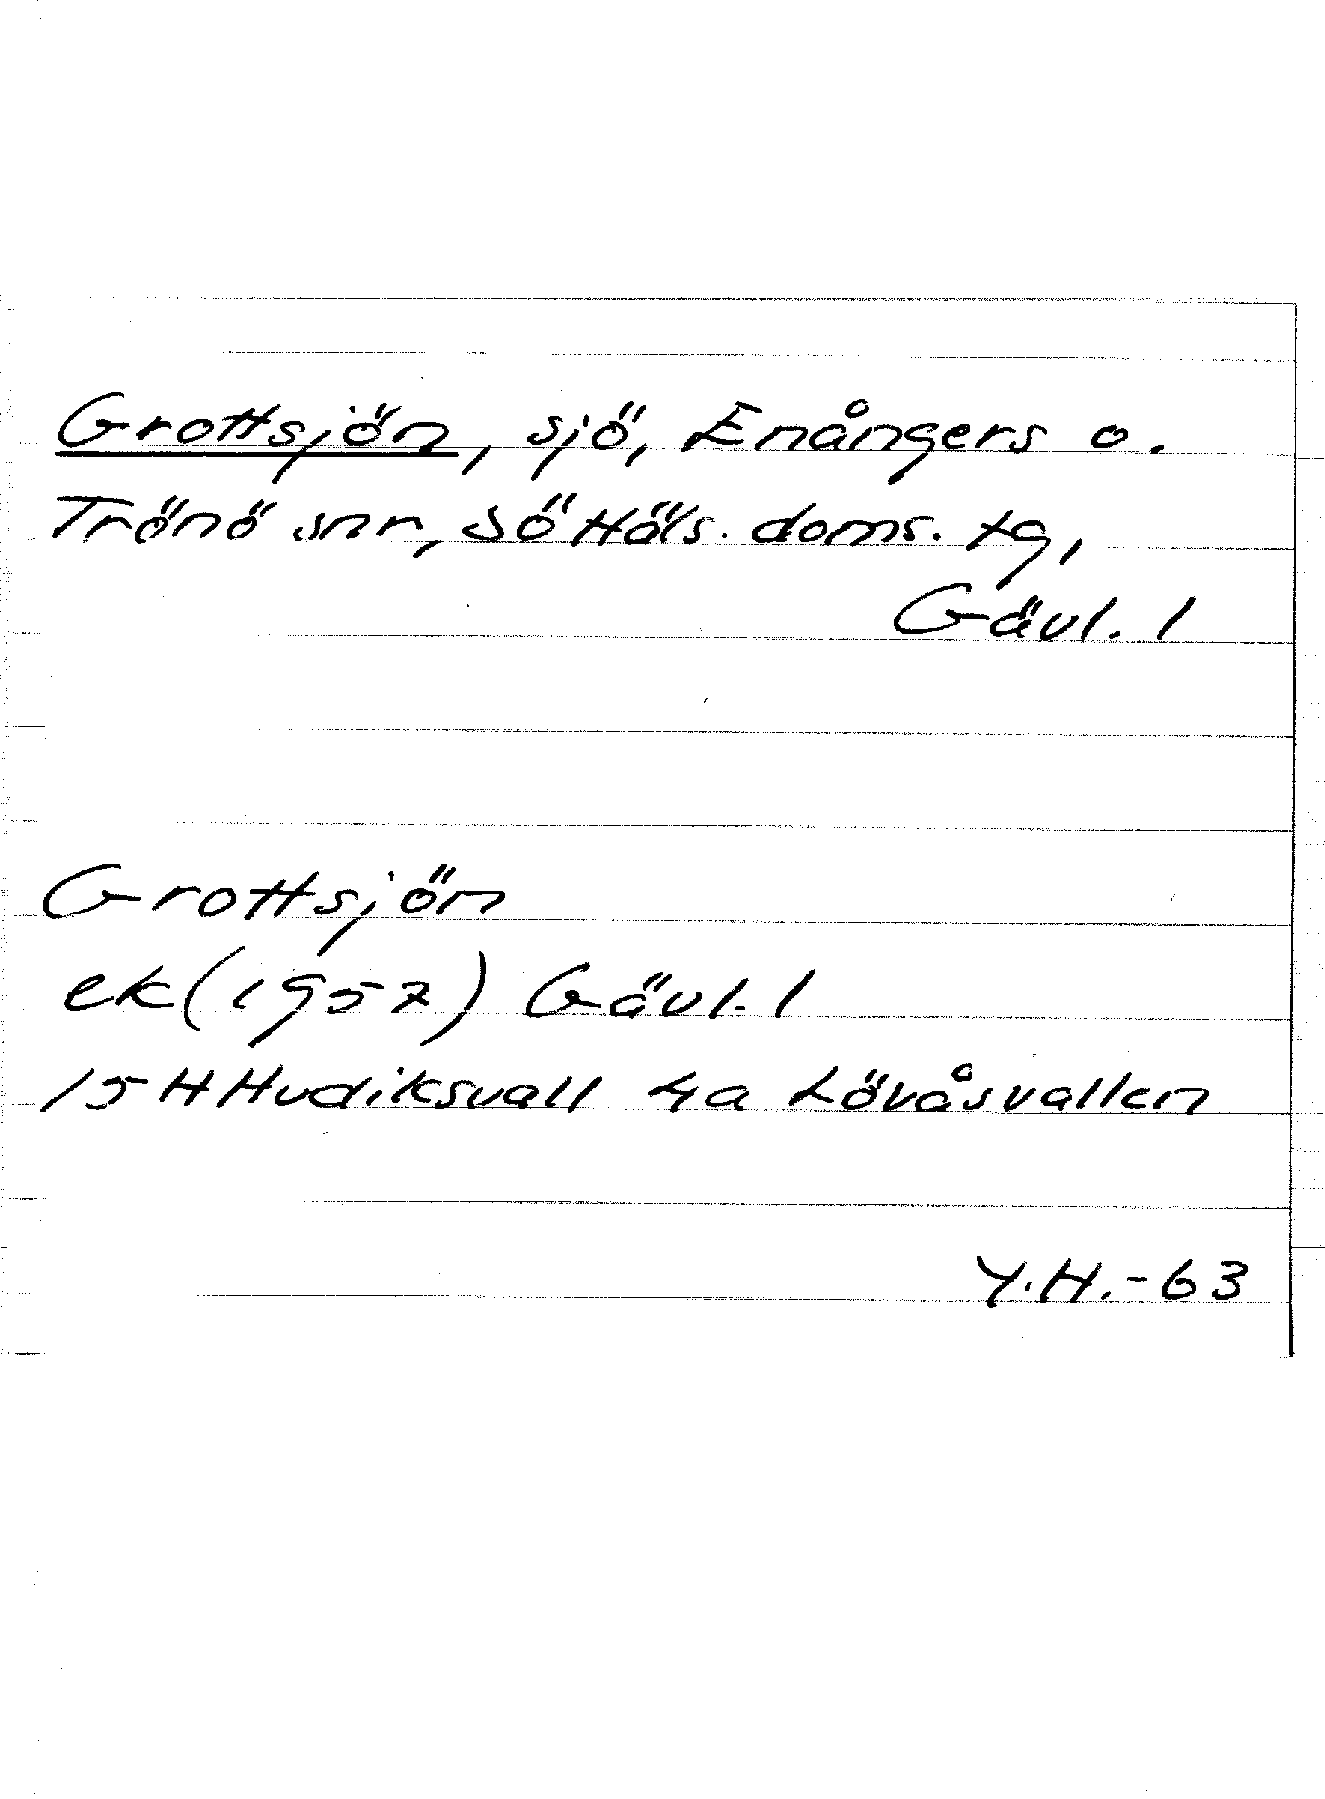 Grottsjön, sjö, Enångers o.
Trönö snr, Sö Häls. doms. tg,
Gävl. l
Grottsjön
ek (1957) Gävl. l
15H Hudiksvall 4a Lövåsvallen
Y.H.-63